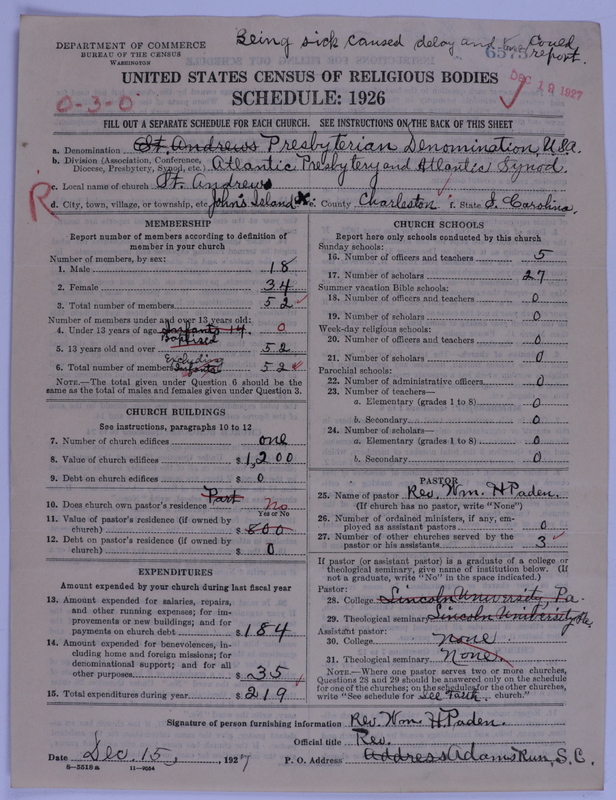 Being sick caused delay and Could
report.
DEPARTMENT OF COMMERCE
BUREAU OF THE CENSUS
WASHINGTON
6575
DEC 19 1927
UNITED STATES CENSUS OF RELIGIOUS BODIES
SCHEDULE: 1926
0-3-0
FILL OUT A SEPARATE SCHEDULE FOR EACH CHURCH. SEE INSTRUCTIONS ON THE BACK OF THIS SHEET
a. Denomination St. Andrews Presbyterian Denomination, U.S.A.
b. Division (Association, Conference, Diocese, Presbytery, Synod, etc.) Atlantic Presbytery and Atlantic Synod.
c. Local name of church St. Andrews
R
d. City, town, village, or township, etc. John's Island e. County Charleston f. State S. Carolina.
MEMBERSHIP
Report number of members according to definition of
member in your church
Number of members, by sex:
1. Male 18
2. Female 34
3. Total number of members 52
Number of members under and over 13 years old:
4. Under 13 years of age Infants 14. 0
Baptised
5. 13 years old and over 52
Excluding
6. Total number of members Infants 52
NOTE.—The total given under Question 6 should be the
same as the total of males and females given under Question 3.
CHURCH BUILDINGS
See instructions, paragraphs 10 to 12
7. Number of church edifices one
8. Value of church edifices $ 1,200
9. Debt on church edifices $ 0
Part
10. Does church own pastor's residence? No
Yes or No
11. Value of pastor's residence (if owned by
church) $ 800
12. Debt on pastor's residence (if owned by
church) $ 0
EXPENDITURES
Amount expended by your church during last fiscal year
13. Amount expended for salaries, repairs,
and other running expenses; for im-
provements or new buildings; and for
payments on church debt $ 184
14. Amount expended for benevolences, in-
cluding home and foreign missions; for
denominational support; and for all
other purposes $ 35
15. Total expenditures during year $ 219
CHURCH SCHOOLS
Report here only schools conducted by this church
Sunday schools:
16. Number of officers and teachers 5
17. Number of scholars 27
Summer vacation Bible schools:
18. Number of officers and teachers 0
19. Number of scholars 0
Week-day religious schools:
20. Number of officers and teachers 0
21. Number of scholars 0
Parochial schools:
22. Number of administrative officers 0
23. Number of teachers—
a. Elementary (grades 1 to 8) 0
b. Secondary 0
24. Number of scholars—
a. Elementary (grades 1 to 8) 0
b. Secondary 0
PASTOR
25. Name of pastor Rev. Wm. H Paden.
(If church has no pastor, write "None")
26. Number of ordained ministers, if any, em-
ployed as assistant pastors 0
27. Number of other churches served by the
pastor or his assistants 3
If pastor (or assistant pastor) is a graduate of a college or
theological seminary, give name of institution below. (If
not a graduate, write "No" in the space indicated.)
Pastor:
28. College Lincoln University Pa.
29. Theological seminary Lincoln University
Assistant pastor:
30. College none
31. Theological seminary None.
NOTE.—Where one pastor serves two or more churches,
Questions 28 and 29 should be answered only on the schedule
for one of the churches; on the schedules for the other churches,
write "See schedule for See Faith church."
Signature of person furnishing information Rev. Wm. H Paden.
Official title Rev.
Date Dec. 15, 1927 P. O. Address Address Adams Run, S.C.
8-5518a 11-9054